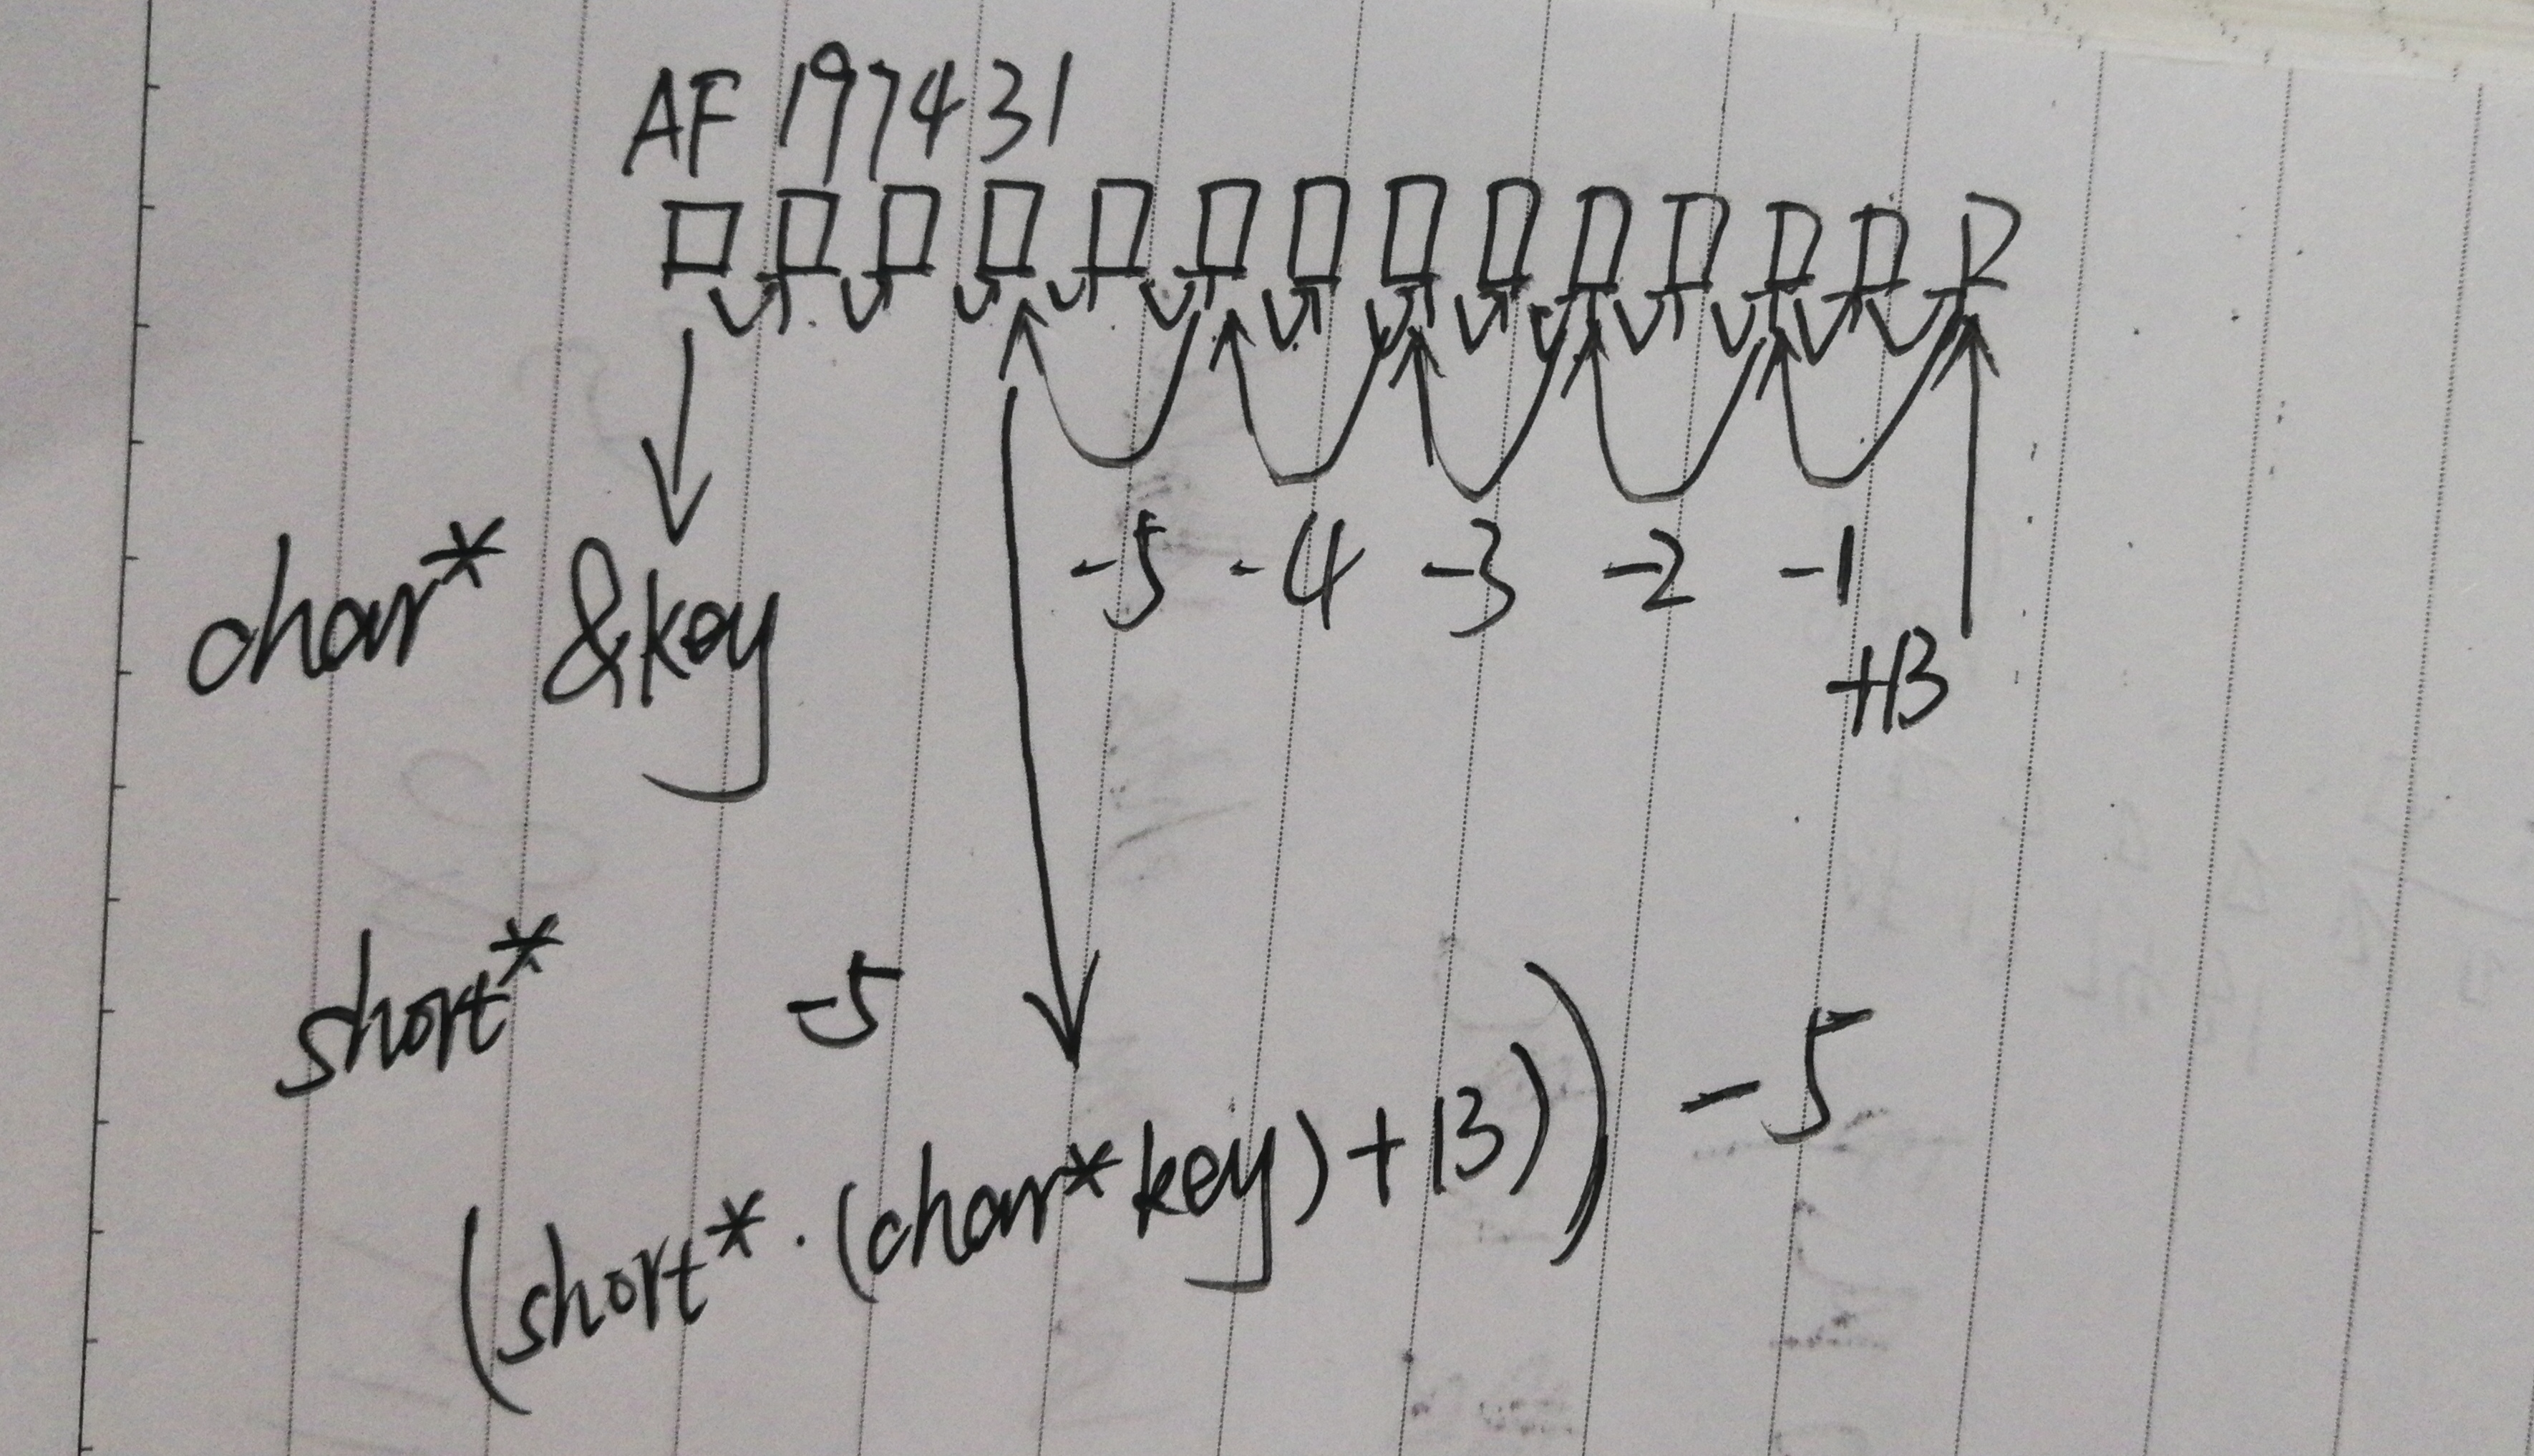 AF 197431
-5 -4 -3 -2 -1
char* &key
+13
short* -5
(short* . (char* key) + 13)) - 5